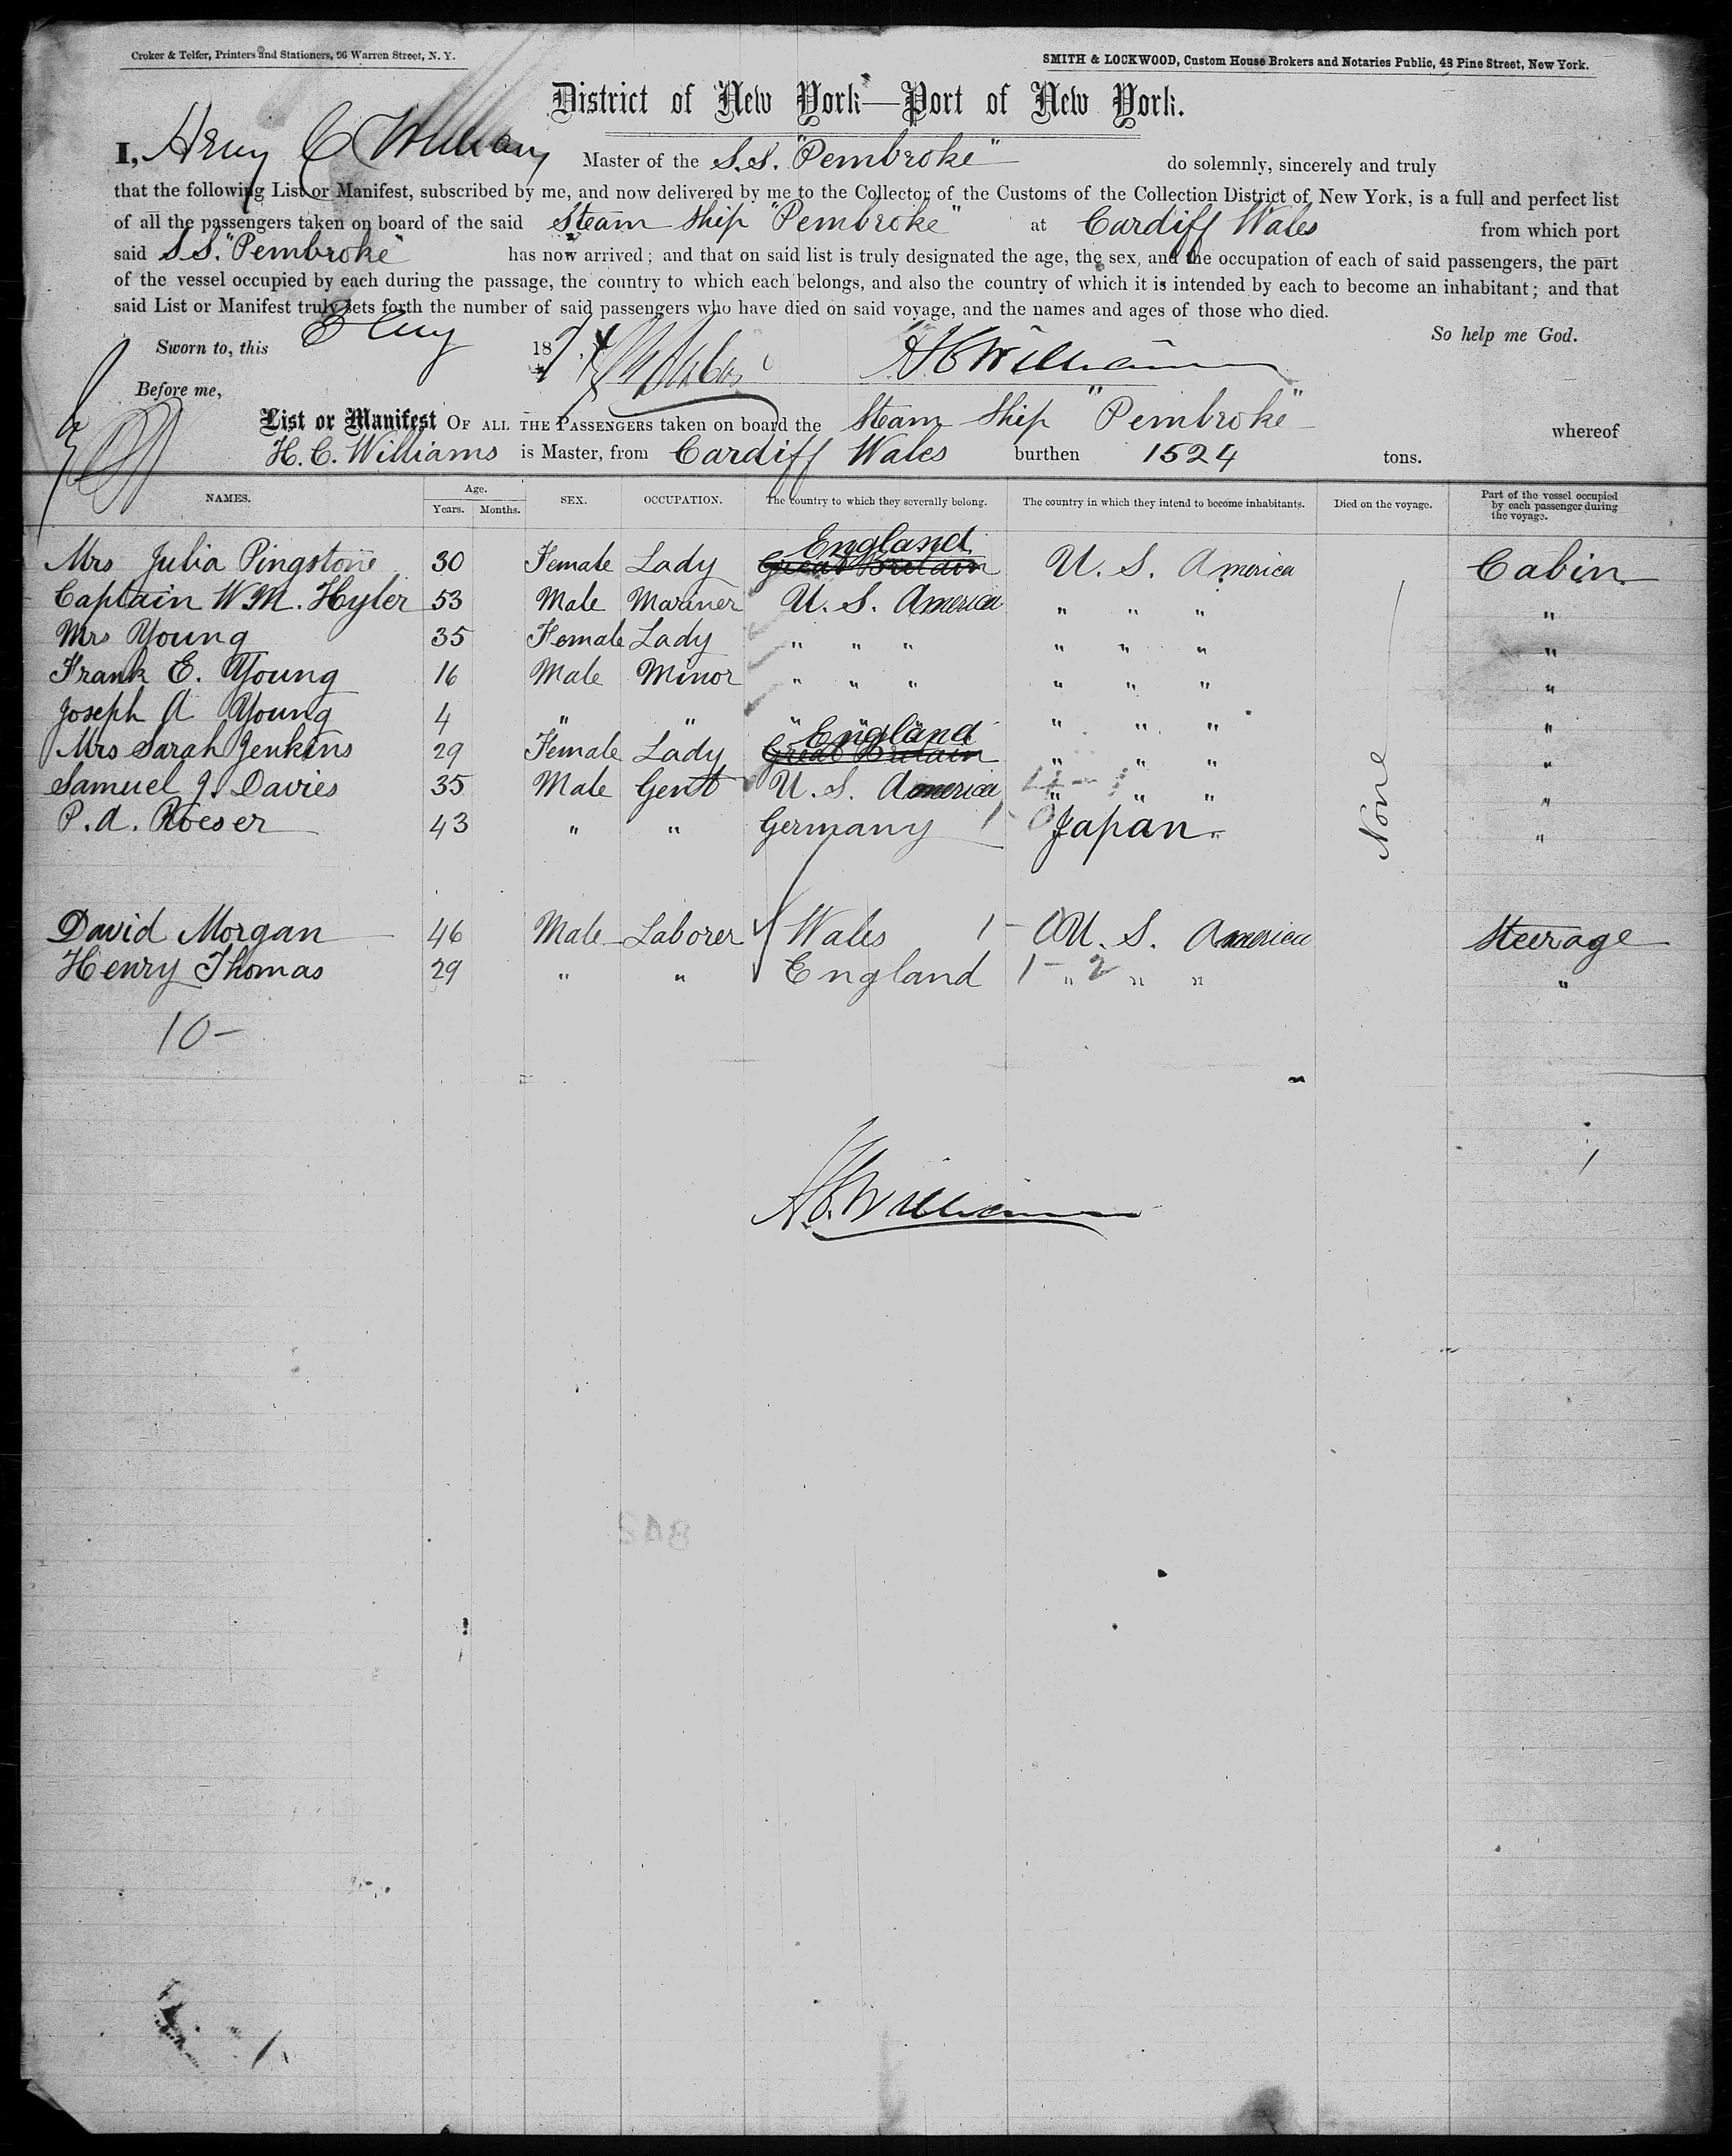 Croker & Telfer, Printers and Stationers, 96 Warren Street, N. Y.
SMITH & LOCKWOOD, Custom House Brokers and Notaries Public, 43 Pine Street, New York.
District of New York—Port of New York.
I, Henry C Williams Master of the S.S. "Pembroke" do solemnly, sincerely and truly
that the following List or Manifest, subscribed by me, and now delivered by me to the Collector of the Customs of the Collection District of New York, is a full and perfect list
of all the passengers taken on board of the said Steam Ship "Pembroke" at Cardiff Wales from which port
said S.S. "Pembroke" has now arrived; and that on said list is truly designated the age, the sex, and the occupation of each of said passengers, the part
of the vessel occupied by each during the passage, the country to which each belongs, and also the country of which it is intended by each to become an inhabitant; and that
said List or Manifest truly sets forth the number of said passengers who have died on said voyage, and the names and ages of those who died.
So help me God.
Sworn to, this 8 Aug 1874 H C Williams
Before me,
List or Manifest OF ALL THE PASSENGERS taken on board the Steam Ship "Pembroke" whereof
H. C. Williams is Master, from Cardiff Wales burthen 1524 tons.
NAMES. Age. Years. Months. SEX. OCCUPATION. The country to which they severally belong. The country in which they intend to become inhabitants. Died on the voyage. Part of the vessel occupied by each passenger during the voyage.
Mrs Julia Pingstone 30 Female Lady England Great Britain U. S. America Cabin
Captain W.M. Hyler 53 Male Mariner U. S. America " " " "
Mrs Young 35 Female Lady " " " " " " "
Frank E. Young 16 Male Minor " " " " " " "
Joseph A Young 4 " " " " " " " " "
Mrs Sarah Jenkins 29 Female Lady England Great Britain " " " "
Samuel J. Davies 35 Male Gent U. S. America " " " "
P. A. Roeser 43 " " Germany 1 - 0 Japan "
None
David Morgan 46 Male Laborer Wales 1 - 0 U. S. America Steerage
Henry Thomas 29 " " England 1 - 2 " " " "
10-
H C Williams